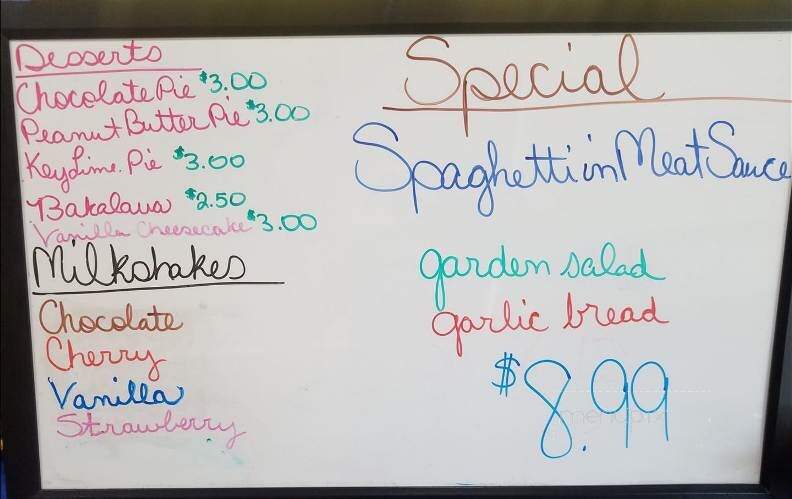 Desserts
Chocolate Pie $3.00
Peanut Butter Pie $3.00
Key Lime. Pie $3.00
Bakalava $2.50
Vanilla Cheesecake $3.00
Milkshakes
Chocolate
Cherry
Vanilla
Strawberry
Special
Spaghetti in Meat Sauce
garden salad
garlic bread
$8.99